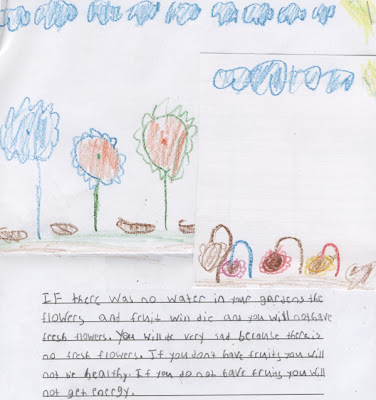 IF there was no water in your gardens the
flowers and fruit win die and you will not have
fresh flowers. You will be very sad because there is
no fresh flowers. If you dont have fruits you will
not be healthy. If you do not have fruits you will
not get energy.